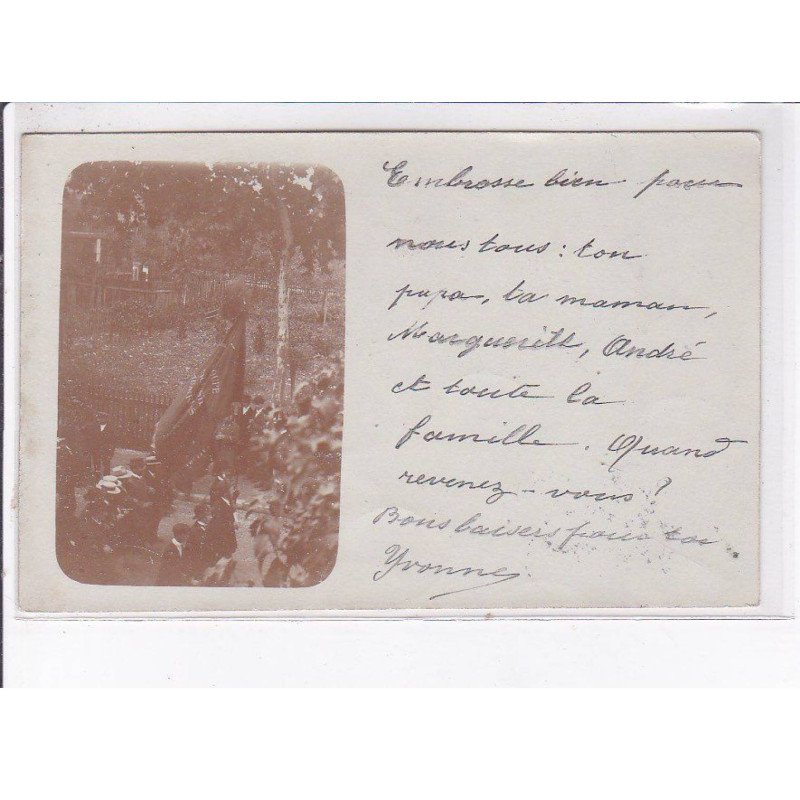 Embrasse bien pour
nous tous : ton
papa, ta maman,
Marguerite, André
et toute la
famille. Quand
revenez-vous ?
Bons baisers pour toi
Yvonne